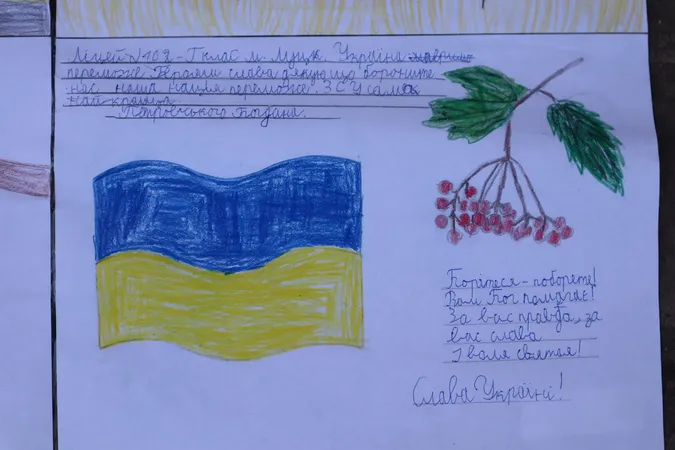 Ліцей №10 2-Г клас м. Луцк. Україна
переможе. Героям слава дякую що бороните
нас наша нація переможе. ЗСУ самі
найкращі
Петровського Богдана.
Борітеся - поборете!
Вам Бог помагає!
За вас правда, за
вас слава
І воля святая!
Слава Україні!